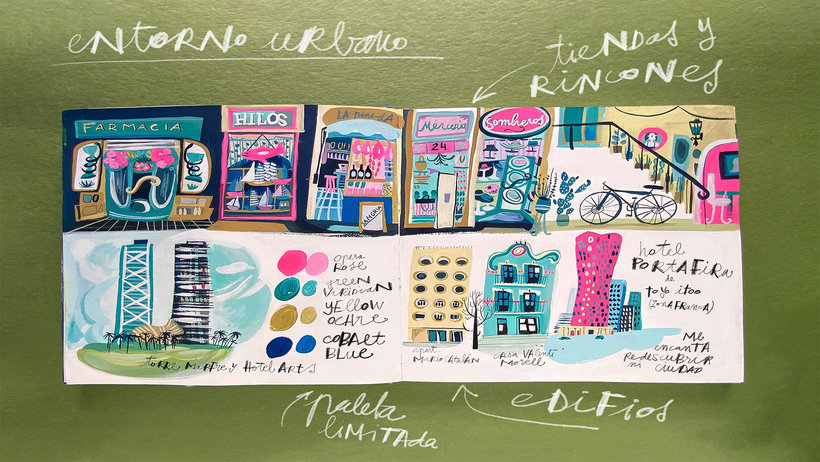 entorno urbano
tiendas y
rincones
FARMACIA
HILOS
LA PINEDA
Mercería
24
Sombreros
opera
rose
green
viridian
yellow
ochre
cobalt
blue
torre Mapfre y Hotel Arts
apart.
Mario Catalán
casa Valentí
Morell
hotel
PORTA FIRA
de
toyo itoo
(ZONA FRANCA)
Me
encanta
redescubrir
mi
ciudad
paleta
limitada
edifios